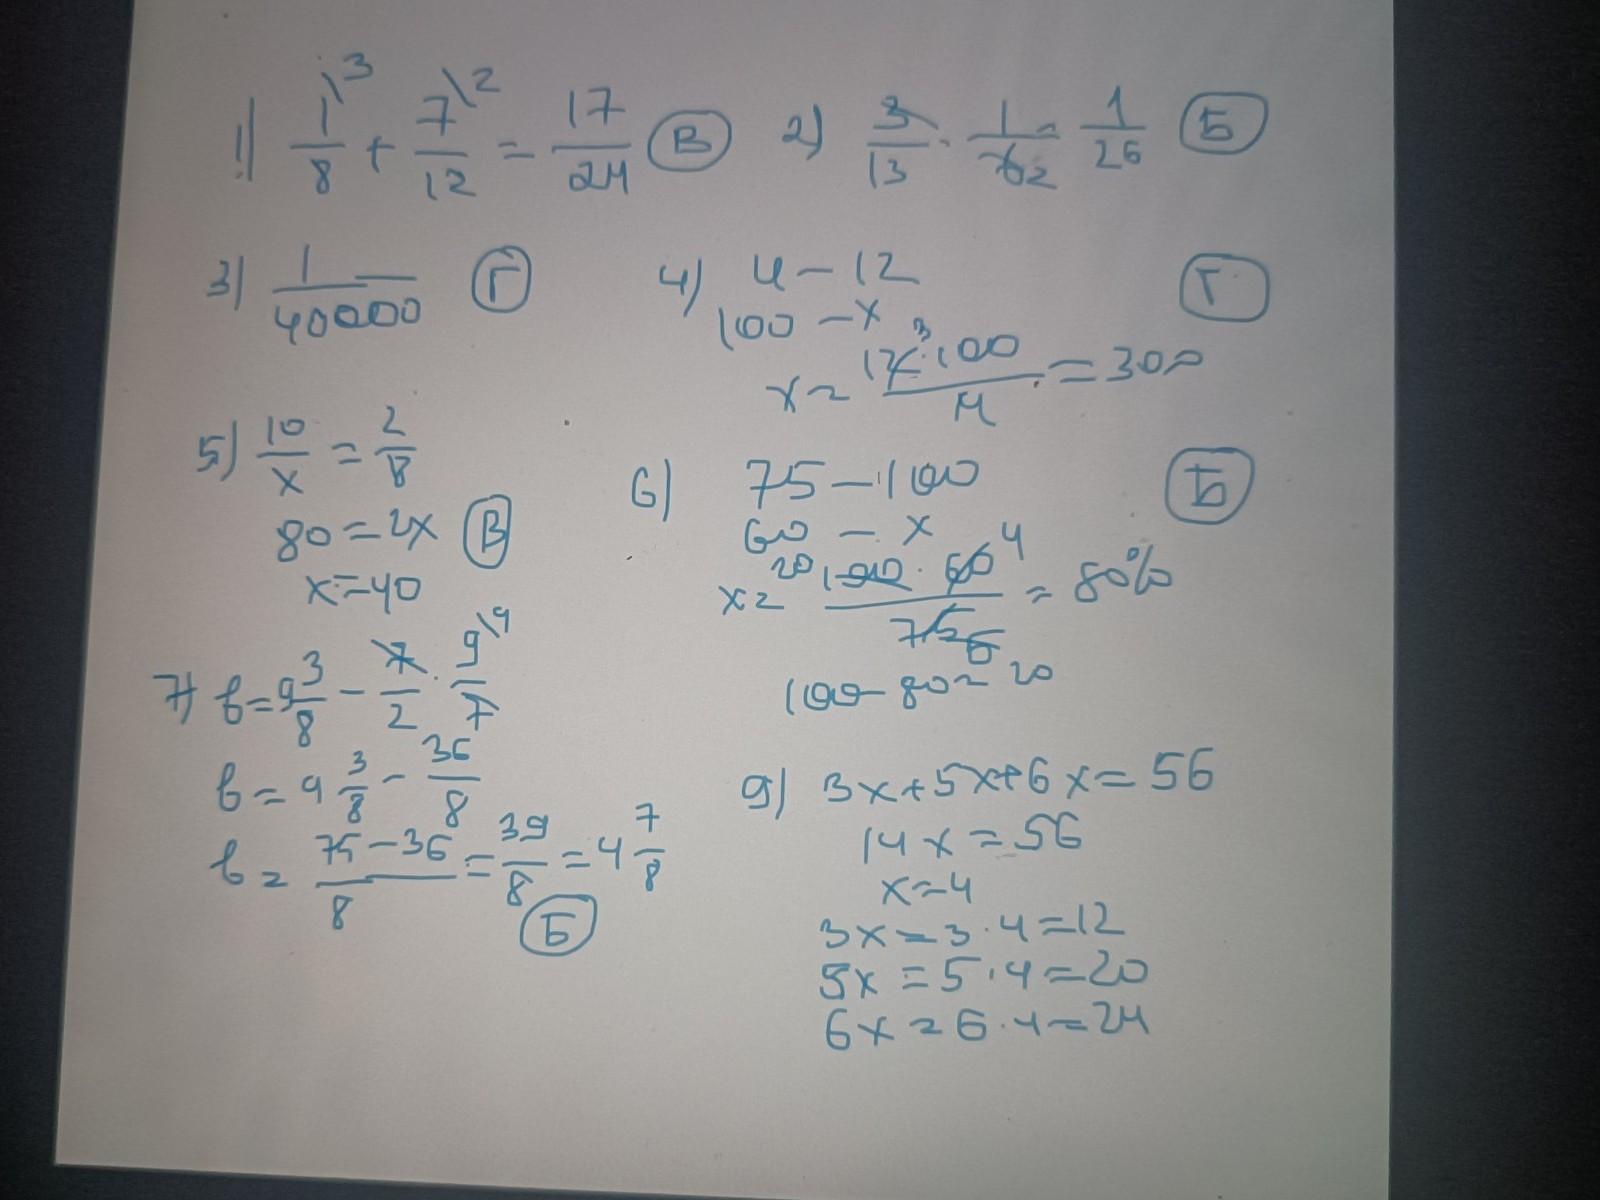 1) 1\3/8 + 7\2/12 = 17/24 (В)
2) 3/13 · 1/6 2 = 1/26 (Б)
3) 1/40000 (Г)
4) 4 – 12 (Г)
100 – x
x = 12 3 · 100/4 = 300
5) 10/x = 2/8
80 = 2x (В)
x = 40
6) 75 – 100 (Б)
60 – x
x = 20 100 · 60 4/75 5 = 80%
100 – 80 = 20
7) b = 9 3/8 – 7/2 · 9\4/7
b = 9 3/8 – 36/8
b = 75 – 36/8 = 39/8 = 4 7/8
(Б)
9) 3x + 5x + 6x = 56
14x = 56
x = 4
3x = 3 · 4 = 12
5x = 5 · 4 = 20
6x = 6 · 4 = 24